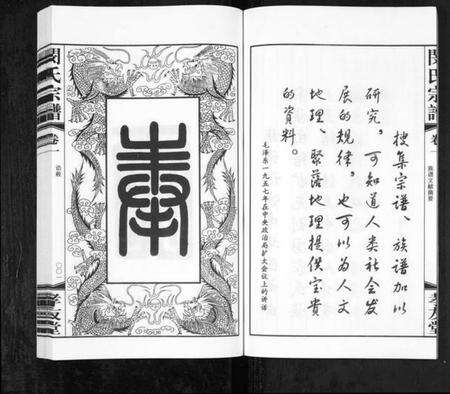 閔氏宗譜
卷一
族譜文獻摘要
孝友堂
搜集宗譜、族譜加以
研究,可知道人类社会发
展的規律,也可以为人文
地理、聚落地理提供宝贵
的資料。
毛澤东一九五七年在中央政治局扩大会议上的讲话
閔氏宗譜
卷一
孝友堂